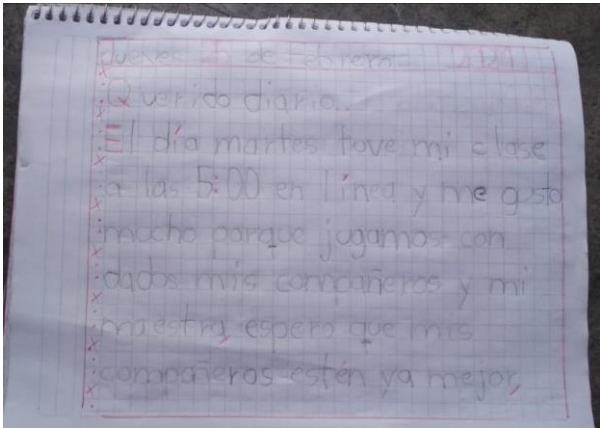 Jueves de Febrero 2021
Querido diario..
El día martes tuve mi clase
a las 5:00 en línea y me gusto
mucho porque jugamos con
dados mis compañeros y mi
maestra, espero que mis
compañeros estén ya mejor,